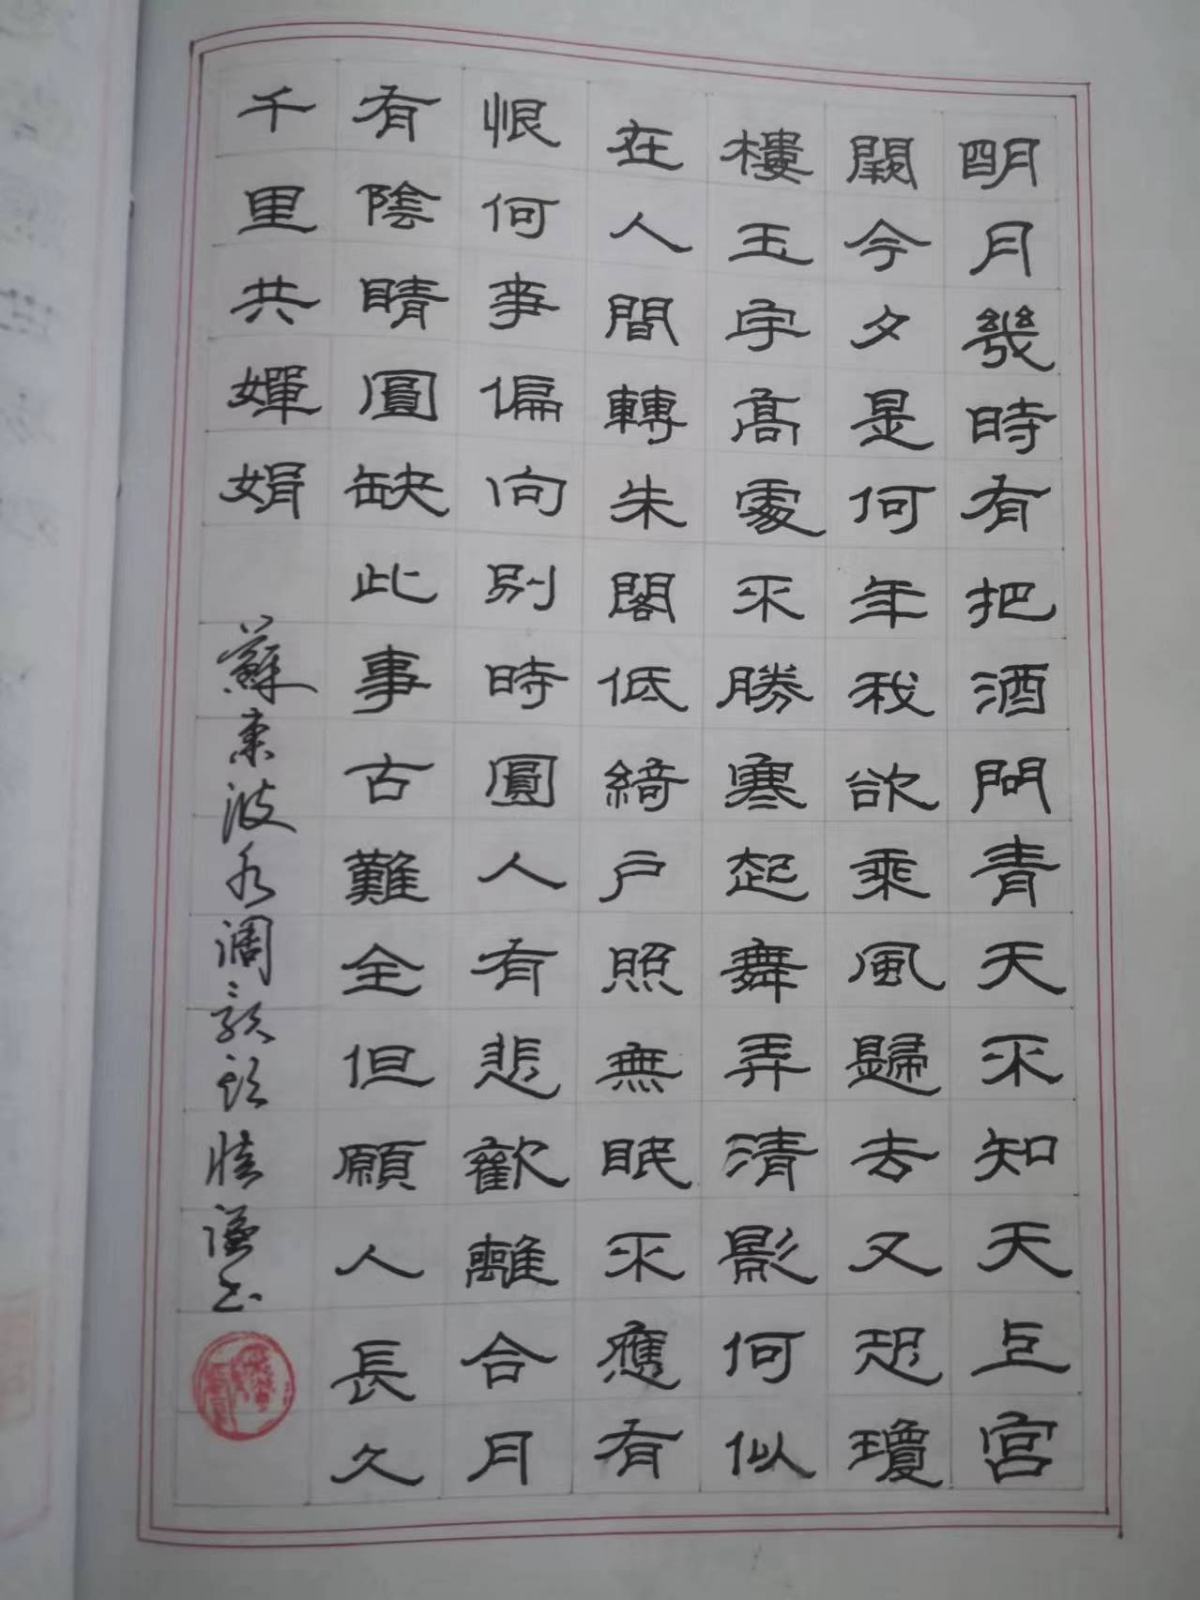 明月幾時有把酒問青天不知天上宮
闕今夕是何年我欲乘風歸去又恐瓊
樓玉宇高處不勝寒起舞弄清影何似
在人間轉朱閣低綺戶照無眠不應有
恨何事偏向別時圓人有悲歡離合月
有陰晴圓缺此事古難全但願人長久
千里共嬋娟 蘇東波水調歌頭